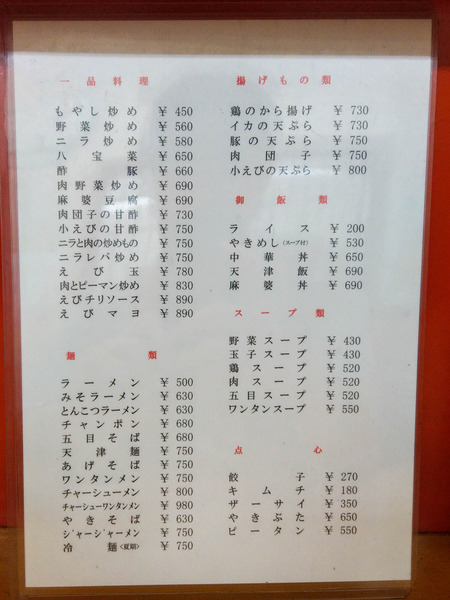 一品料理
もやし炒め ¥ 450
野菜炒め ¥ 560
ニラ炒め ¥ 580
八宝菜 ¥ 650
酢豚 ¥ 660
肉野菜炒め ¥ 690
麻婆豆腐 ¥ 690
肉団子の甘酢 ¥ 730
小えびの甘酢 ¥ 750
ニラと肉の炒めもの ¥ 750
ニラレバ炒め ¥ 750
えび玉 ¥ 780
肉とピーマン炒め ¥ 830
えびチリソース ¥ 890
えびマヨ ¥ 890
麺類
ラーメン ¥ 500
みそラーメン ¥ 630
とんこつラーメン ¥ 630
チャンポン ¥ 680
五目そば ¥ 680
天津麺 ¥ 750
あげそば ¥ 750
ワンタンメン ¥ 750
チャーシューメン ¥ 800
チャーシューワンタンメン ¥ 980
やきそば ¥ 630
ジャージャーメン ¥ 750
冷麺<夏期> ¥ 750
揚げもの類
鶏のから揚げ ¥ 730
イカの天ぷら ¥ 730
豚の天ぷら ¥ 750
肉団子 ¥ 750
小えびの天ぷら ¥ 800
御飯類
ライス ¥ 200
やきめし(スープ付) ¥ 530
中華丼 ¥ 650
天津飯 ¥ 690
麻婆丼 ¥ 690
スープ類
野菜スープ ¥ 430
玉子スープ ¥ 430
鶏スープ ¥ 520
肉スープ ¥ 520
五目スープ ¥ 520
ワンタンスープ ¥ 550
点心
餃子 ¥ 270
キムチ ¥ 180
ザーサイ ¥ 350
やきぶた ¥ 650
ピータン ¥ 550